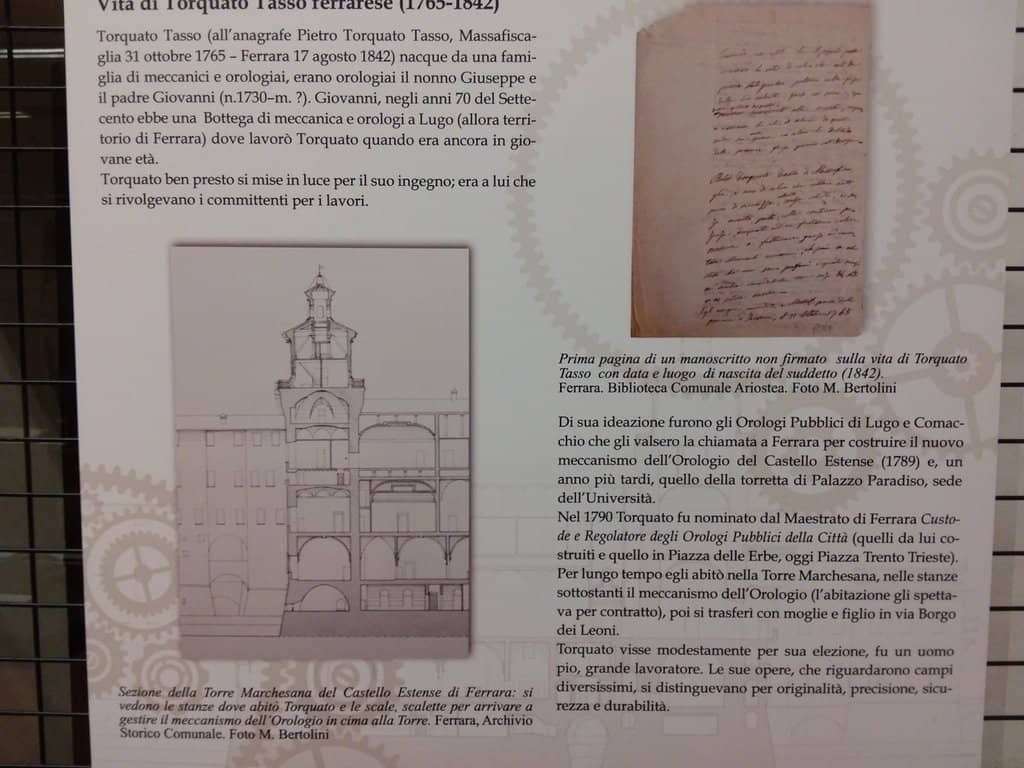 Vita di Torquato Tasso ferrarese (1765-1842)
Torquato Tasso (all'anagrafe Pietro Torquato Tasso, Massafisca-
glia 31 ottobre 1765 – Ferrara 17 agosto 1842) nacque da una fami-
glia di meccanici e orologiai, erano orologiai il nonno Giuseppe e
il padre Giovanni (n.1730–m. ?). Giovanni, negli anni 70 del Sette-
cento ebbe una Bottega di meccanica e orologi a Lugo (allora terri-
torio di Ferrara) dove lavorò Torquato quando era ancora in gio-
vane età.
Torquato ben presto si mise in luce per il suo ingegno; era a lui che
si rivolgevano i committenti per i lavori.
Sezione della Torre Marchesana del Castello Estense di Ferrara: si
vedono le stanze dove abitò Torquato e le scale, scalette per arrivare a
gestire il meccanismo dell'Orologio in cima alla Torre. Ferrara, Archivio
Storico Comunale. Foto M. Bertolini
Prima pagina di un manoscritto non firmato sulla vita di Torquato
Tasso con data e luogo di nascita del suddetto (1842).
Ferrara. Biblioteca Comunale Ariostea. Foto M. Bertolini
Di sua ideazione furono gli Orologi Pubblici di Lugo e Comac-
chio che gli valsero la chiamata a Ferrara per costruire il nuovo
meccanismo dell'Orologio del Castello Estense (1789) e, un
anno più tardi, quello della torretta di Palazzo Paradiso, sede
dell'Università.
Nel 1790 Torquato fu nominato dal Maestrato di Ferrara Custo-
de e Regolatore degli Orologi Pubblici della Città (quelli da lui co-
struiti e quello in Piazza delle Erbe, oggi Piazza Trento Trieste).
Per lungo tempo egli abitò nella Torre Marchesana, nelle stanze
sottostanti il meccanismo dell'Orologio (l'abitazione gli spetta-
va per contratto), poi si trasferì con moglie e figlio in via Borgo
dei Leoni.
Torquato visse modestamente per sua elezione, fu un uomo
pio, grande lavoratore. Le sue opere, che riguardarono campi
diversissimi, si distinguevano per originalità, precisione, sicu-
rezza e durabilità.